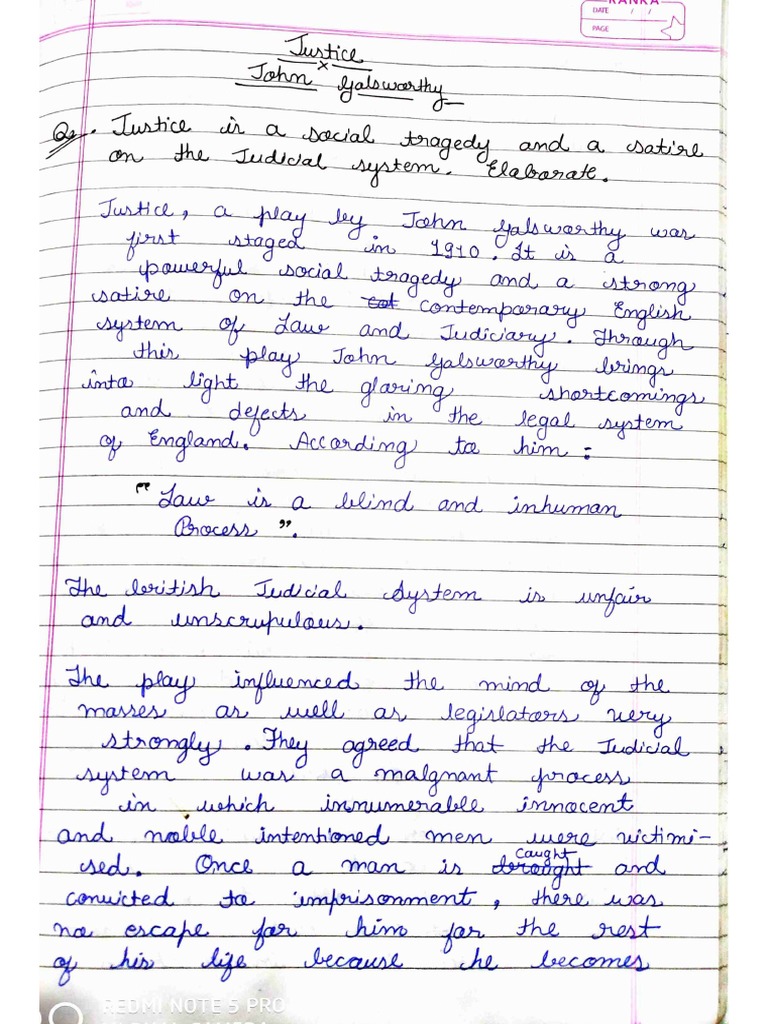 RANKA
DATE / /
PAGE
Justice
x
John Galsworthy
Q. Justice is a social tragedy and a satire
on the Judicial system. Elaborate.
Justice, a play by John Galsworthy was
first staged in 1910. It is a
powerful social tragedy and a strong
satire on the contemporary English
system of Law and Judiciary. Through
this play John Galsworthy brings
into light the glaring shortcomings
and defects in the legal system
of England. According to him :
"Law is a blind and inhuman
Process".
The british Judicial System is unfair
and unscrupulous.
The play influenced the mind of the
masses as well as legislators very
strongly. They agreed that the Judicial
system was a malgnant process
in which innumerable innocent
and noble intentioned men were victimi-
sed. Once a man is caught and
convicted to imprisonment, there was
no escape for him for the rest
of his life because he becomes
REDMI NOTE 5 PRO